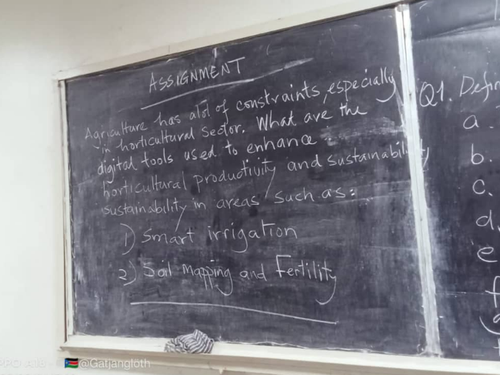 ASSIGNMENT
Agriculture has alot of constraints, especially
in horticultural sector. What are the
digital tools used to enhance
horticultural productivity and sustainability
sustainability in areas such as:
1) Smart irrigation
2) Soil mapping and Fertility
Q1. Defin
a.
b.
c.
d.
e
f
g
@Gatjangloth